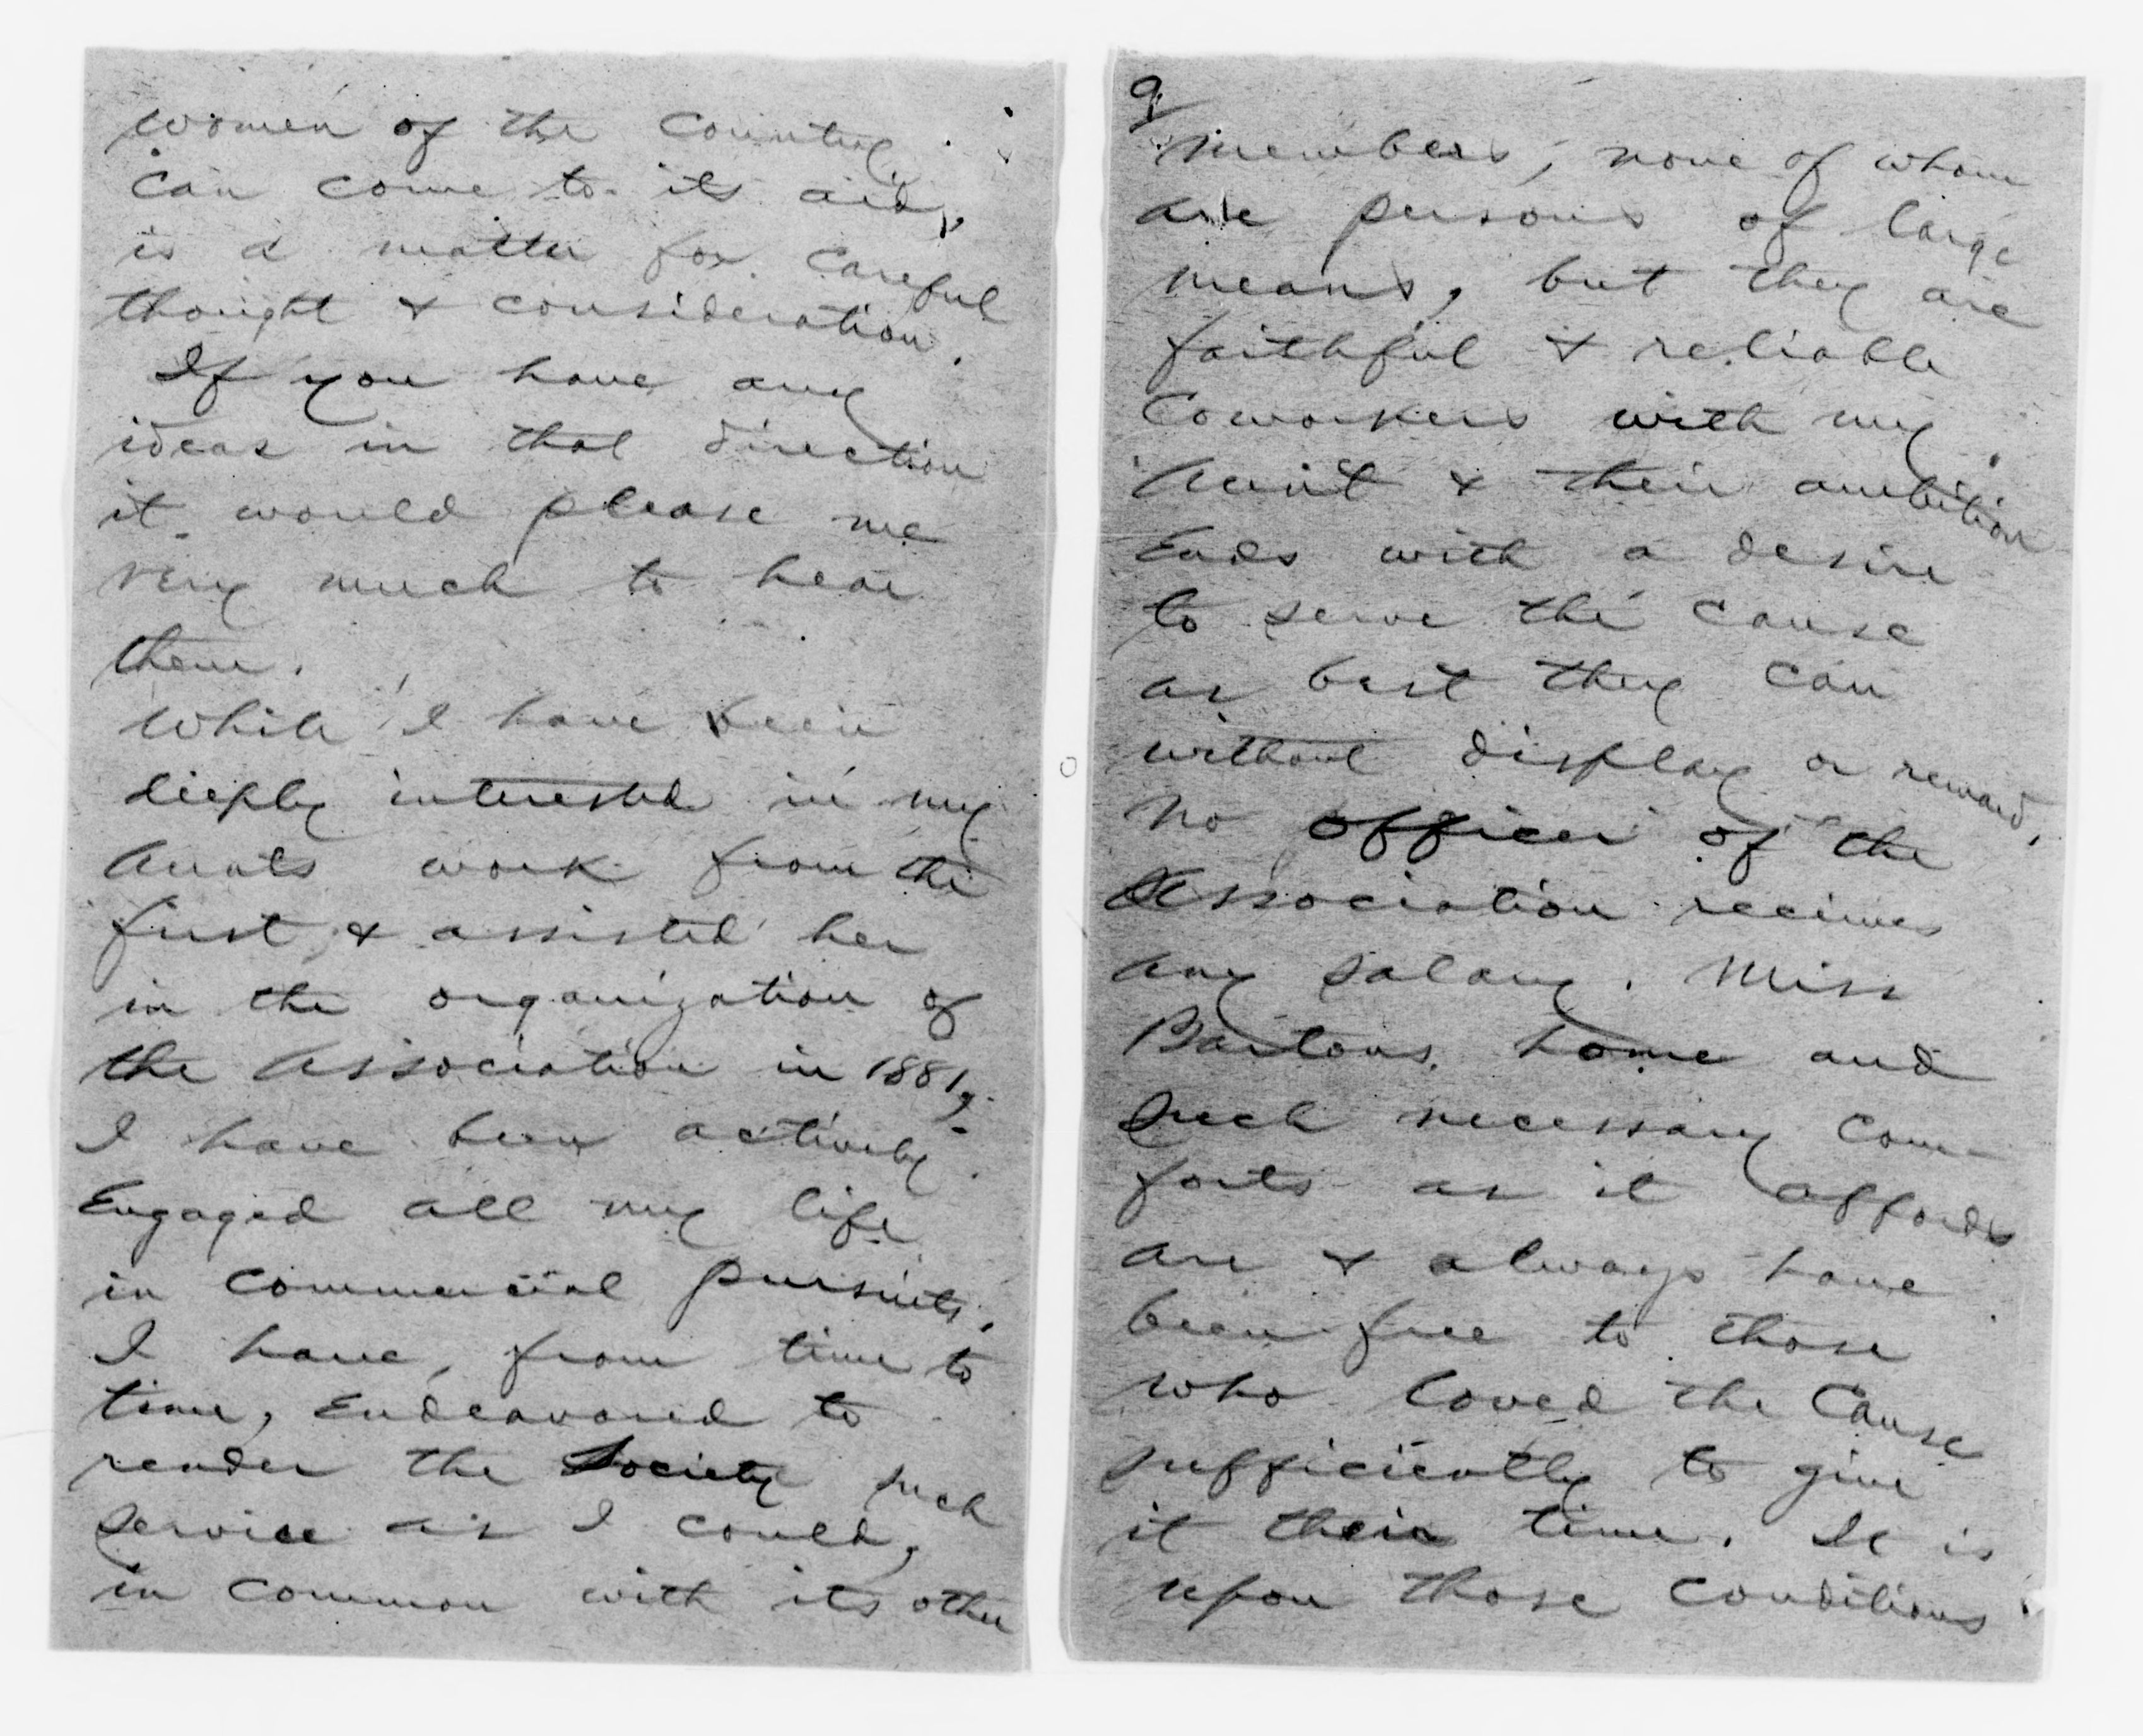 women of the Country
can come to its aid,
is a matter for careful
thought & consideration.
If you have any
ideas in that direction
it would please me
very much to hear
them.
While I have been
deeply interested in my
Aunts work from the
first, & assisted her
in the organization of
the Association in 1881,
I have been actively
Engaged all my life
in commercial pursuits,
I have, from time to
time, Endeavored to
render the Society such
service as I could,
in common with its other
9
members, none of whom
are persons of large
means, but they are
faithful & reliable
Coworkers with my
Aunt & their ambition
Ends with a desire
to serve the cause
as best they can
without display or reward,
No officer of the
Association receives
any salary. Miss
Bartons home and
such necessary com-
forts as it affords
are & always have
been free to those
who loved the Cause
sufficiently to give
it their time. It is
upon those conditions